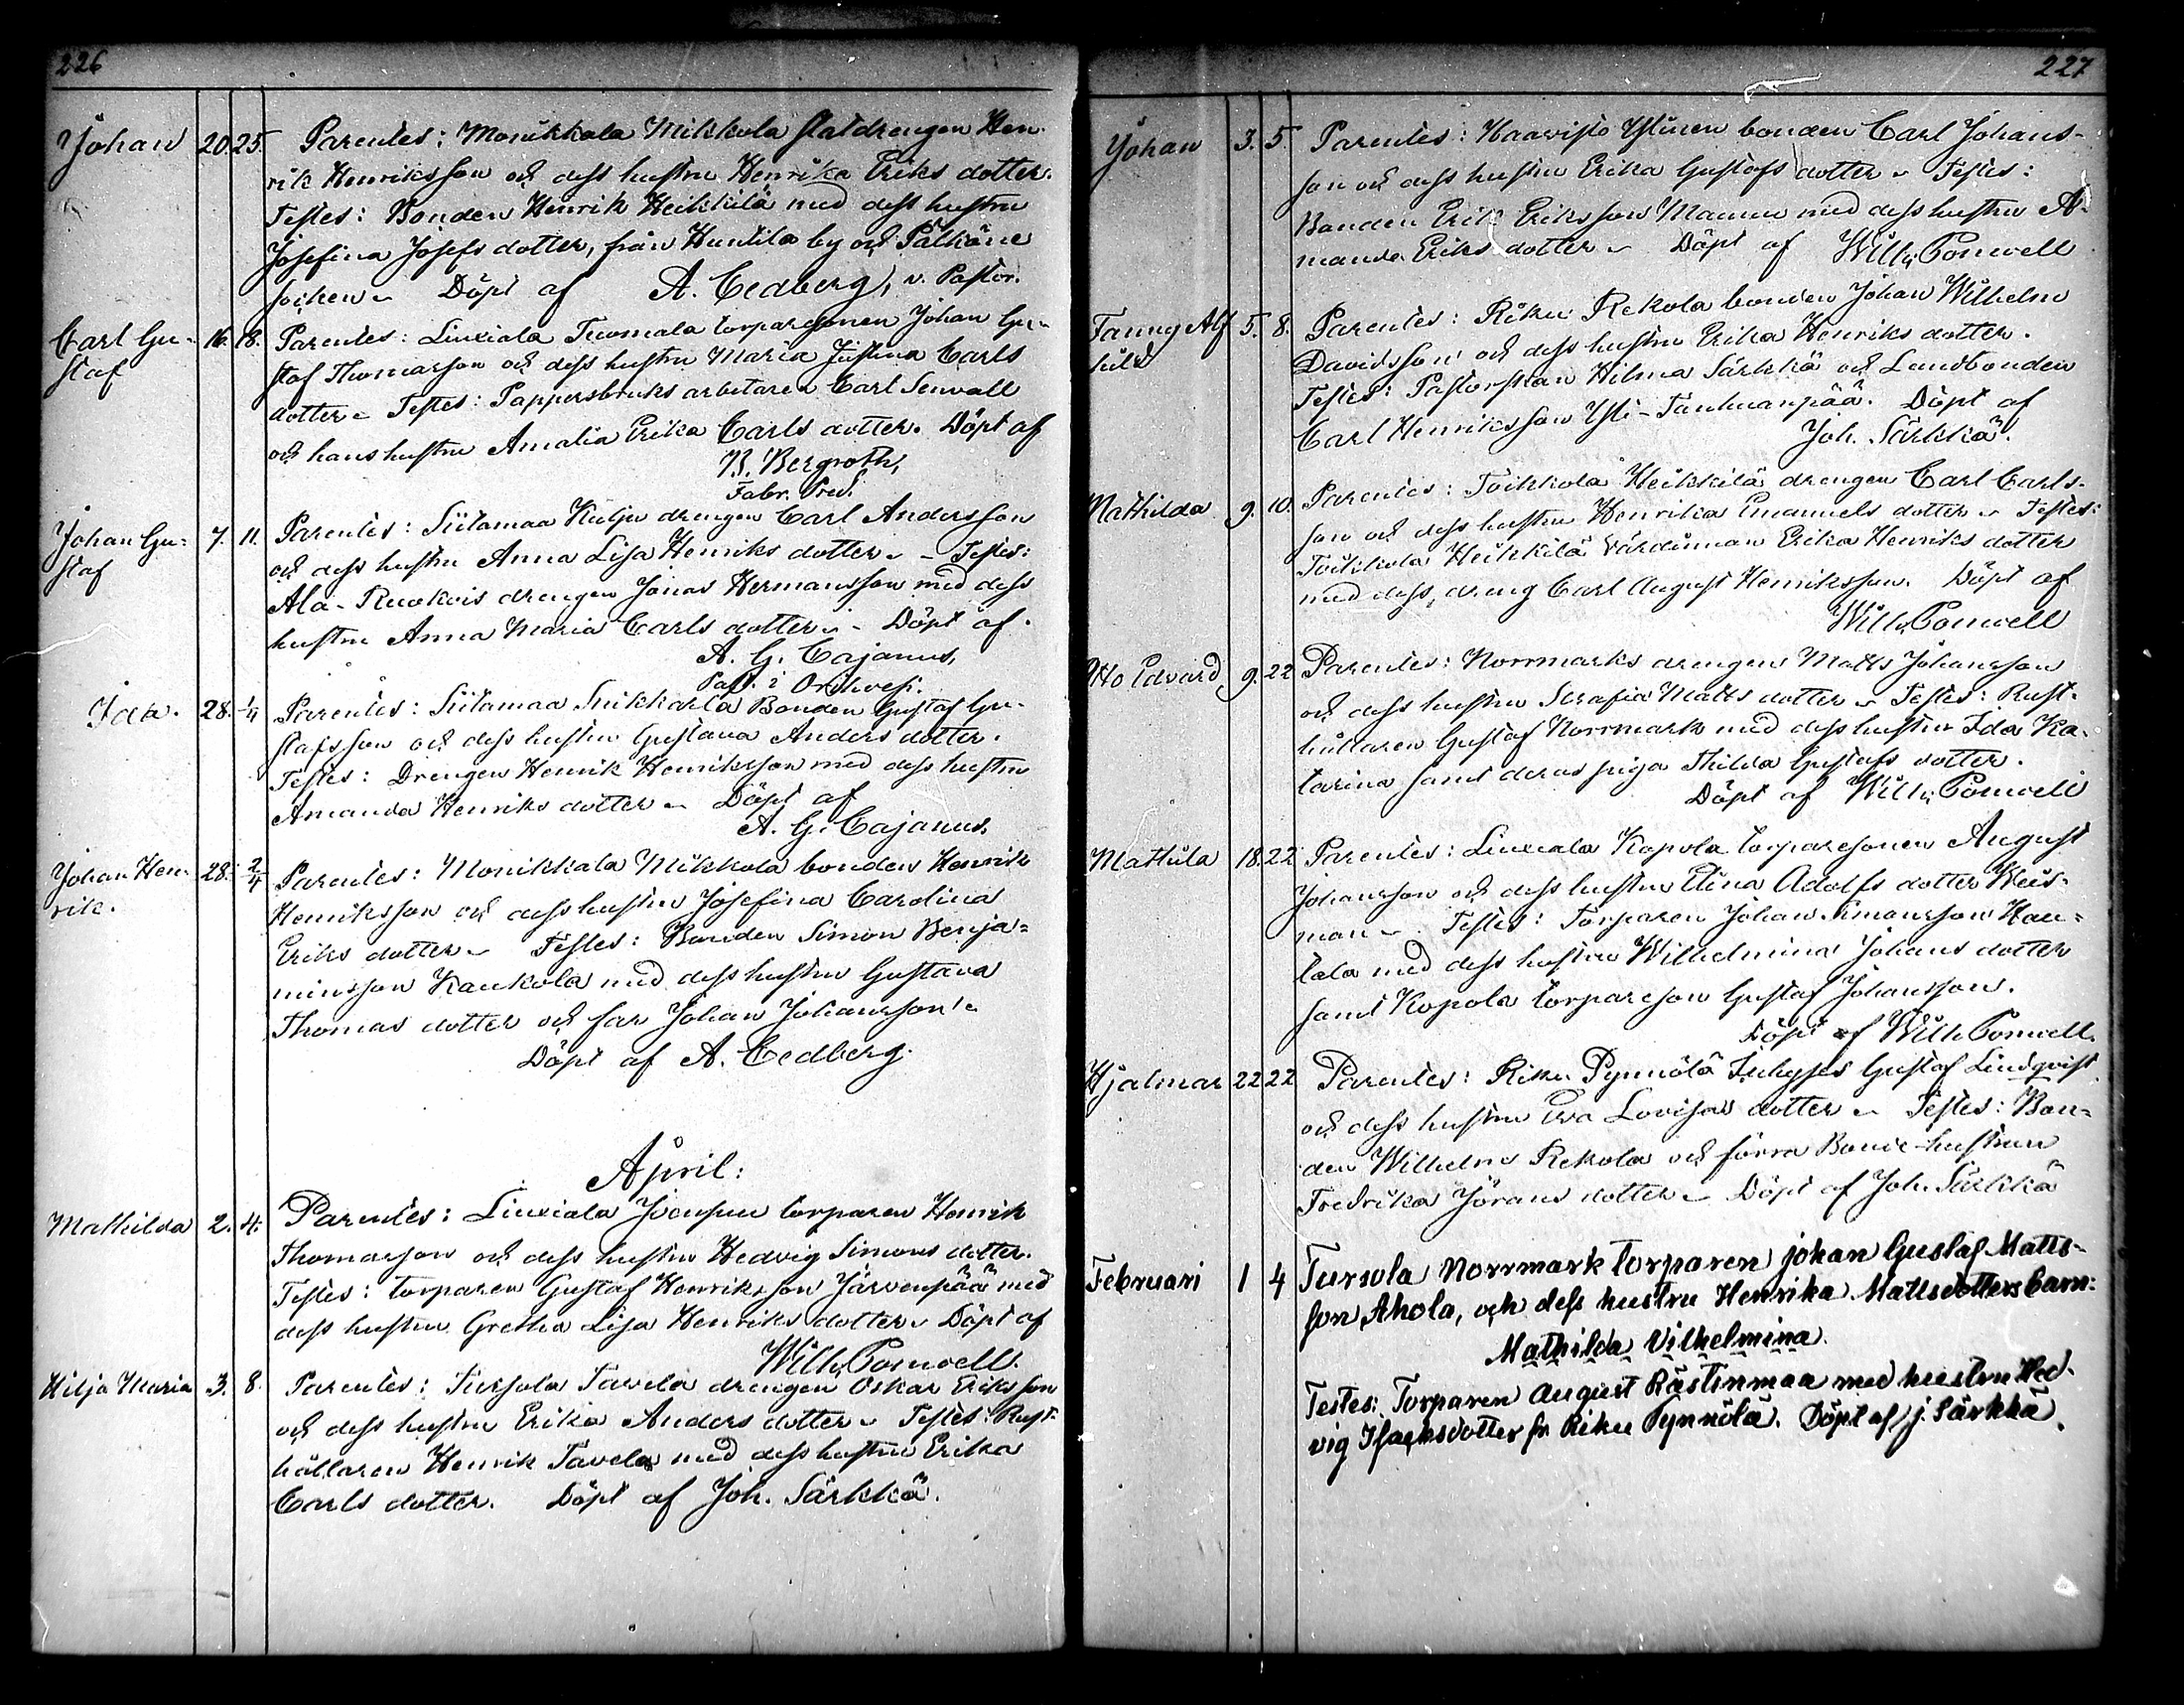 226
Johan 20. 25. Parentes: Monikkala Mikkola statdrengen Hen-
rik Henriksson och dess hustru Henrika Eriks dotter.
Testes: Bonden Henrik Heikkilä med dess hustru
Josefina Josefs dotter, från Huntila by och Pälkäne
socken. Döpt af A. Cedberg, v. Pastor.
Carl Gu- 16. 18. Parentes: Linciala Tuomala torparesonen Johan Gu-
staf staf Thomasson och dess hustru Maria Justina Carls
dotter. Testes: Pappersbruks arbetaren Carl Senvall
och hans hustru Amalia Erika Carls dotter. Döpt af
B. Bergroth,
Fabr. Pred.
Johan Gu- 7. 11. Parentes: Siitamaa Kulju drengen Carl Andersson
staf och dess hustru Anna Lisa Henriks dotter. Testes:
Ala-Ruokois drengen Jonas Hermansson med dess
hustru Anna Maria Carls dotter. Döpt af
A. G. Cajanus,
Past. i Orihvesi.
Ida. 28. 1/4 Parentes: Siitamaa Snikkarla Bonden Gustaf Gu-
stafsson och dess hustru Gustava Anders dotter.
Testes: Drengen Henrik Henriksson med dess hustru
Amanda Henriks dotter. Döpt af
A. G. Cajanus.
Johan Hen- 28. 2/4 Parentes: Monikkala Mikkola bonden Henrik
rik. Henriksson och dess hustru Josefina Carolina
Eriks dotter. Testes: Bonden Simon Benja-
minsson Kaukola med dess hustru Gustava
Thomas dotter och far Johan Johansson.
Döpt af A. Cedberg.
April:
Mathilda 2. 4. Parentes: Linciala torparen Henrik
Thomasson och dess hustru Hedvig Simons dotter.
Testes: torparen Gustaf Henriksson Järvenpää med
dess hustru Gretha Lisa Henriks dotter. Döpt af
Wilh. Ponwell.
Hilja Maria 3. 8. Parentes: Tursola Tavela drengen Oskar Eriksson
och dess hustru Erika Anders dotter. Testes: Rust-
hållaren Henrik Tavela med dess hustru Erika
Carls dotter. Döpt af Joh. Särkkä.
227
Johan 3. 5. Parentes: Haavisto Ylinen bonden Carl Johans-
son och dess hustru Erika Gustafs dotter. Testes:
Bonden Erik Eriksson Mannu med dess hustru A-
manda Eriks dotter. Döpt af Wilh. Ponwell
Fanny Alf- 5. 8. Parentes: Riku Rekola bonden Johan Wilhelm
hild Davidsson och dess hustru Erika Henriks dotter.
Testes: Pastorskan Hilma Särkkä och Landbonden
Carl Henriksson Yli-Tanhuanpää. Döpt af
Joh. Särkkä.
Mathilda 9. 10. Parentes: Toikkola Heikkilä drengen Carl Carls-
son och dess hustru Henrika Emanuels dotter. Testes:
Toikkola Heikkilä värdinnan Erika Henriks dotter
med dess dreng Carl August Henriksson. Döpt af
Wilh. Ponwell
Otto Edvard 9. 22 Parentes: Norrmarks drengen Matts Johansson
och dess hustru Serafia Matts dotter. Testes: Rust-
hållaren Gustaf Norrmark med dess hustru Ida Ka-
tarina samt deras piga Thilda Gustafs dotter.
Döpt af Wilh. Ponwell
Mathilda 18. 22 Parentes: Linciala Kopola torparesonen August
Johansson och dess hustru Elina Adolfs dotter Weis-
man. Testes: Torparen Johan Simonsson Hau-
tala med dess hustru Wilhelmina Johans dotter
samt Kopola torpareson Gustaf Johansson.
Döpt af Wilh. Ponwell.
Hjalmar 22 22 Parentes: Riku Pynnölä Inhyses Gustaf Lindqvist
och dess hustru Eva Lovisas dotter. Testes: Bon-
den Wilhelm Rekola och förra Bonde-hustrun
Fredrika Jörans dotter. Döpt af Joh. Särkkä
Februari 1 4 Tursola Norrmark torparen johan Gustaf Matts-
son Ahola, och dess hustru Henrika Mattsdotters barn:
Mathilda Vilhelmina.
Testes: Torparen August Rästinmaa med hustru Hed-
vig Isacksdotter fr. Riku Pynnölä. Döpt af j. Särkkä.